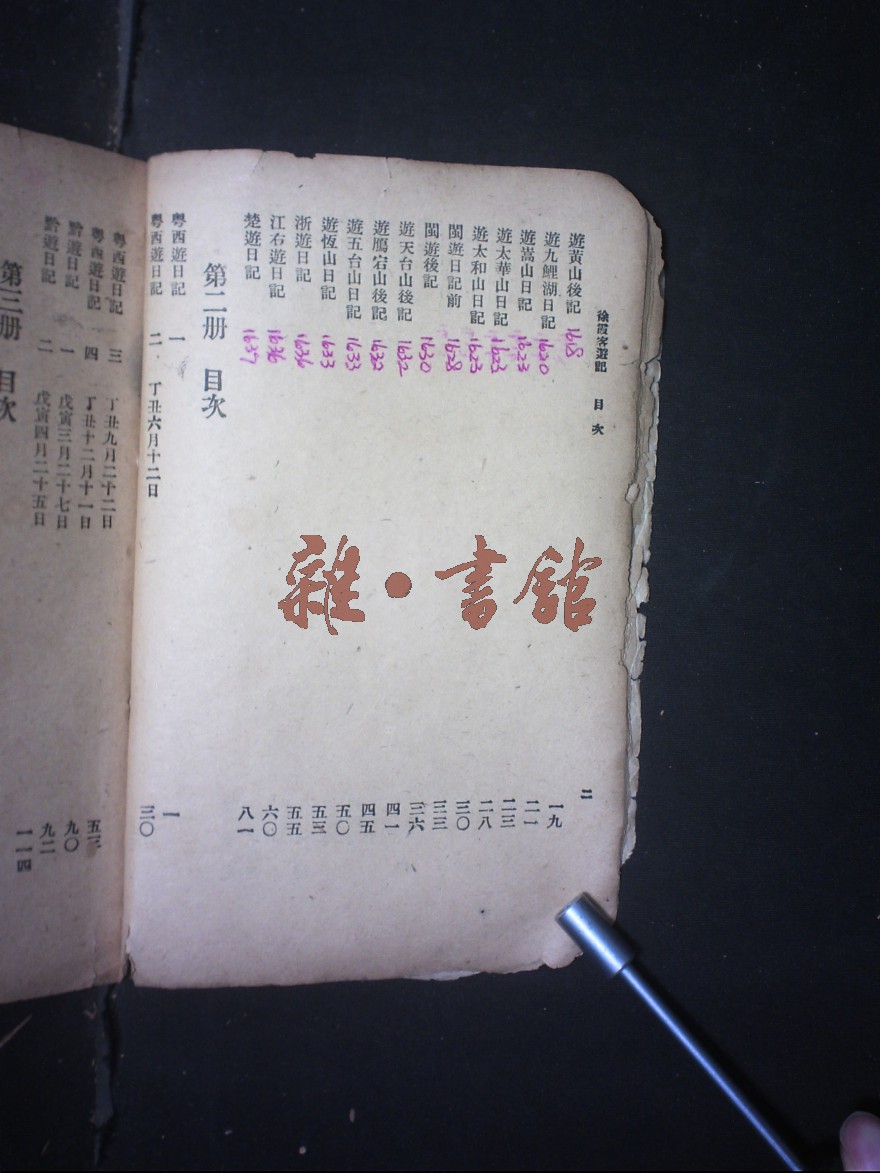 徐霞客遊記 目次 二
遊黃山後記 1618 一九
遊九鯉湖日記 1620 二一
遊嵩山日記 1623 二三
遊太華山日記 1623 二八
遊太和山日記 1623 三〇
閩遊日記前 1628 三三
閩遊後記 1630 三六
遊天台山後記 1632 四一
遊鴈宕山後記 1632 四五
遊五台山日記 1633 五〇
遊恆山日記 1633 五三
浙遊日記 1636 五五
江右遊日記 1636 六〇
楚遊日記 1637 八一
第二册 目次
粵西遊日記 一 一
粵西遊日記 二 丁丑六月十二日 三〇
粵西遊日記 三 丁丑九月二十二日
粵西遊日記 四 丁丑十二月十一日 九〇
黔遊日記 一 戊寅三月二十七日 九二
黔遊日記 二 戊寅四月二十五日 一一四
第三册 目次
雜·書館